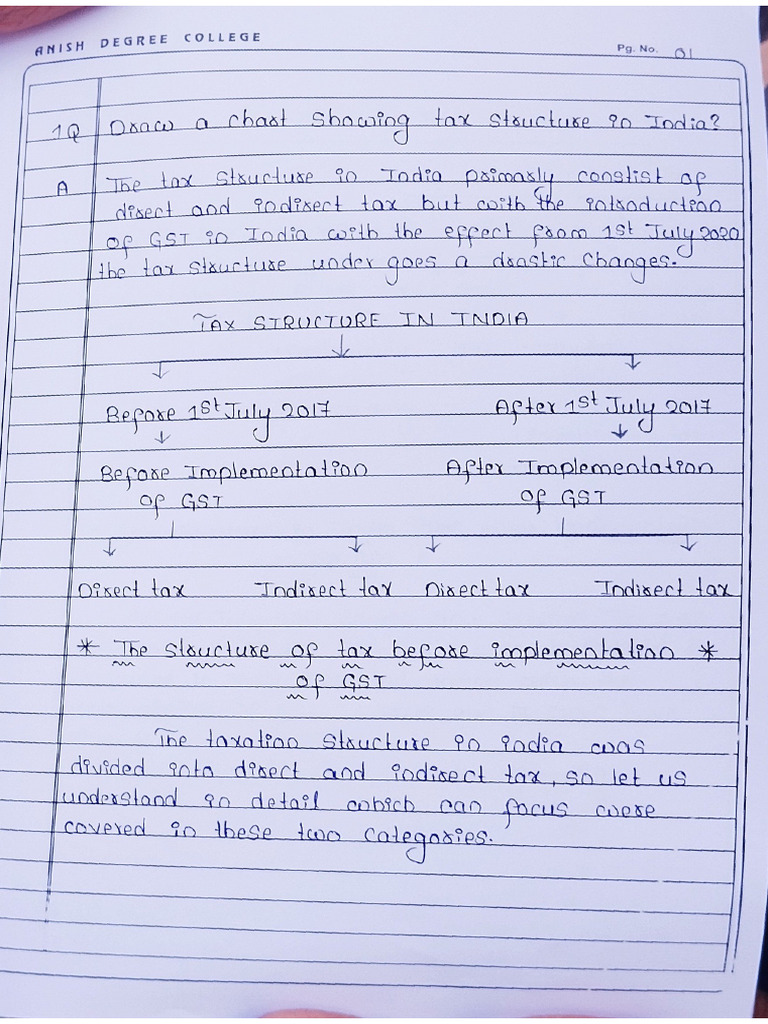 ANISH DEGREE COLLEGE
Pg. No. 01
1Q Draw a chart showing tax structure in India?
A The tax structure in India primarly constist of
direct and indirect tax but with the introduction
of GST in India with the effect from 1st July 2020
the tax structure under goes a drastic changes.
TAX STRUCTURE IN INDIA
Before 1st July 2017 After 1st July 2017
Before Implementation After Implementation
of GST of GST
Direct tax Indirect tax Direct tax Indirect tax
* The structure of tax before implementation *
of GST
The taxation structure in india was
divided into direct and indirect tax, so let us
understand in detail which can focus were
covered in these two categories.